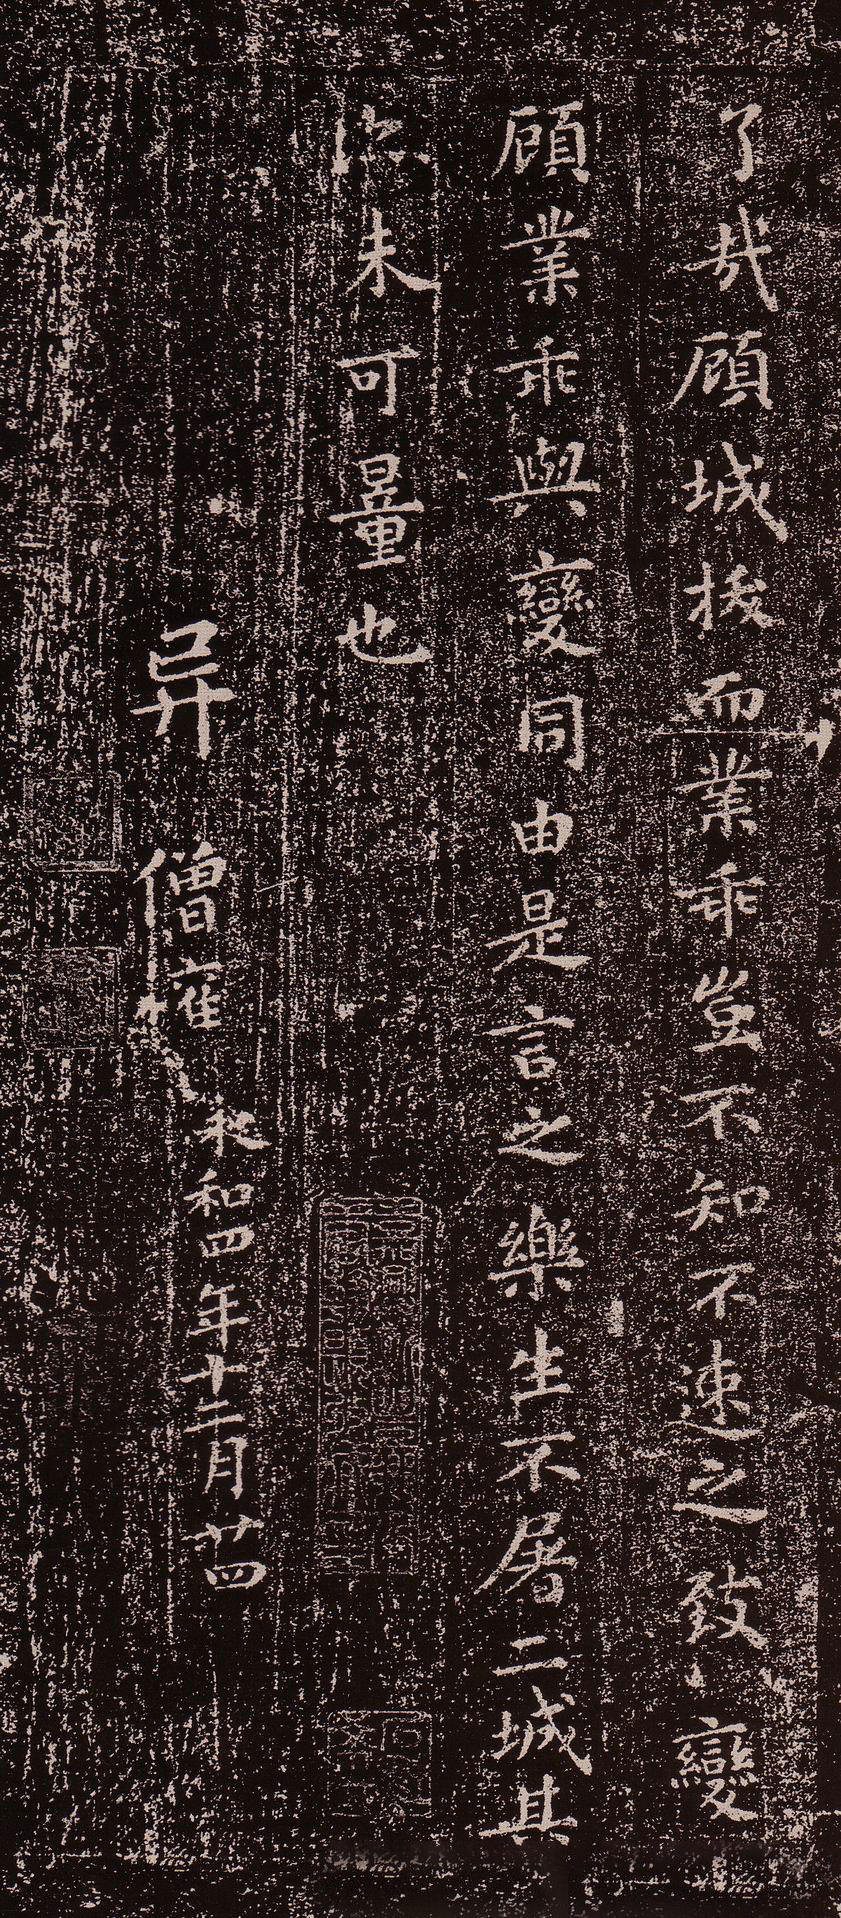 了哉顧城拔而業乖豈不知不速之致變
顧業乖與變同由是言之樂生不屠二城其
未可量也
异
僧權
永和四年十二月廿四